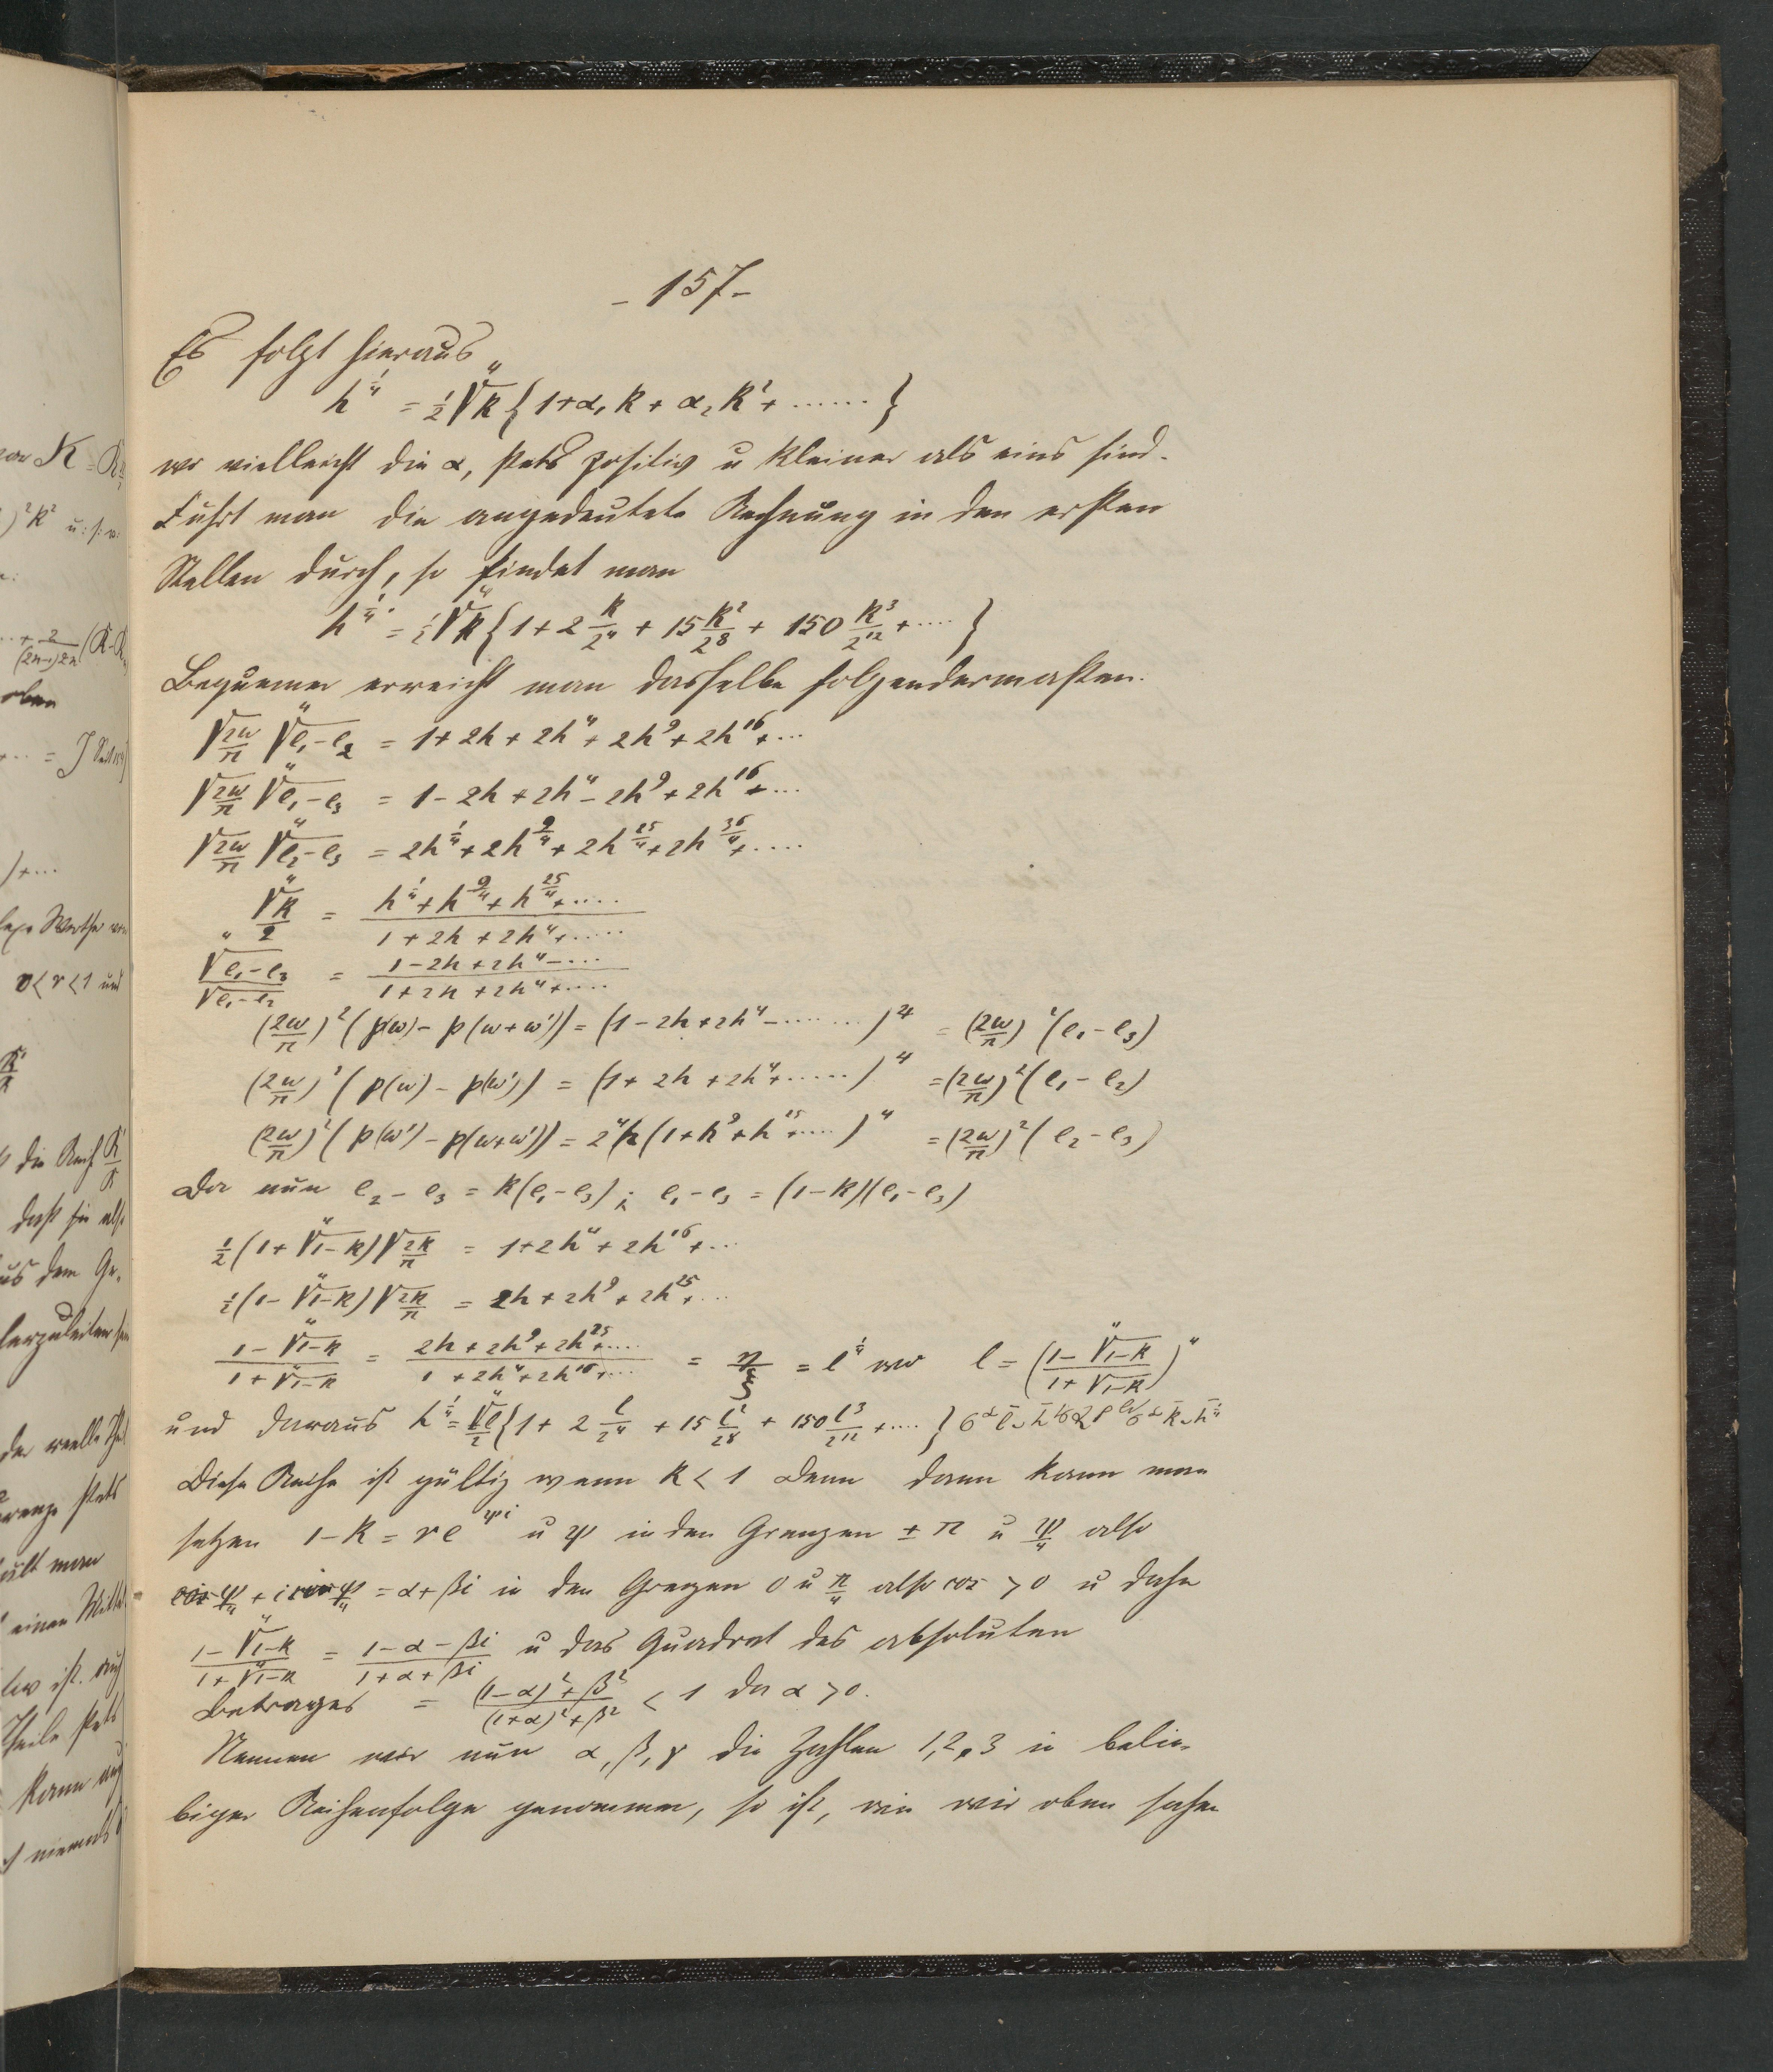 - 157 -
Es folgt hieraus
h^{1/4} = 1/2 ∜k { 1 + α₁ k + α₂ k² + ...... }
wo vielleicht die α, stets positiv u kleiner als eins sind.
Führt man die angedeutete Rechnung in den ersten
Stellen durch, so findet man
h^{1/4} = 1/2 ∜k { 1 + 2 k/2⁴ + 15 k²/2⁸ + 150 k³/2¹² + .... }
Bequemer erreicht man dasselbe folgendermaßen.
√(2ω/π) ∜(e₁-e₂) = 1 + 2h + 2h⁴ + 2h⁹ + 2h¹⁶ + ...
√(2ω/π) ∜(e₁-e₃) = 1 - 2h + 2h⁴ - 2h⁹ + 2h¹⁶ + ...
√(2ω/π) ∜(e₂-e₃) = 2h^{1/4} + 2h^{9/4} + 2h^{25/4} + 2h^{36/4} + ....
∜k/2 = (h^{1/4} + h^{9/4} + h^{25/4} + ....)/(1 + 2h + 2h⁴ + .....)
∜(e₁-e₃)/√(e₁-e₂) = (1 - 2h + 2h⁴ - ...)/(1 + 2h + 2h⁴ + ....)
(2ω/π)² (p(ω) - p(ω+ω')) = (1 - 2h + 2h⁴ - ........)⁴ = (2ω/π)² (e₁-e₃)
(2ω/π)² (p(ω) - p(ω')) = (1 + 2h + 2h⁴ + ......)⁴ = (2ω/π)² (e₁-e₂)
(2ω/π)² (p(ω') - p(ω+ω')) = 2⁴h (1 + h⁹ + h²⁵ + ....)⁴ = (2ω/π)² (e₂-e₃)
Da nun e₂-e₃ = k(e₁-e₃); e₁-e₃ = (1-k)(e₁-e₃)
1/2 (1 + ∜(1-k)) √(2k/π) = 1 + 2h⁴ + 2h¹⁶ + ...
1/2 (1 - ∜(1-k)) √(2k/π) = 2h + 2h⁹ + 2h²⁵ + ...
(1 - ∜(1-k))/(1 + ∜(1-k)) = (2h + 2h⁹ + 2h²⁵ + ....)/(1 + 2h⁴ + 2h¹⁶ + ...) = η/ξ = l^{1/4} wo l = ((1 - ∜(1-k))/(1 + √(1-k)))⁴
und daraus h^{1/4} = ∜l/2 { 1 + 2 l/2⁴ + 15 l²/2⁸ + 150 l³/2¹² + .... }
Diese Reihe ist gültig wenn k < 1 denn dann kann man
setzen 1-k = re^{ψi} u ψ in den Grenzen ± π u ψ/4 also
cos ψ/4 + i sin ψ/4 = α + βi in den Grenzen 0 u π/4 also cos > 0 u daher
(1 - ∜(1-k))/(1 + ∜(1-k)) = (1 - α - βi)/(1 + α + βi) u das Quadrat des absoluten
Betrages = ((1-α)² + β²)/((1+α)² + β²) < 1 da α > 0.
Nennen wir nun α, β, γ die Zahlen 1, 2, 3 in belie-
biger Reihenfolge genommen, so ist, wie wir oben sahen